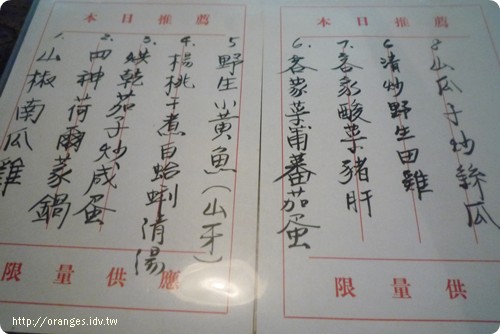 本日推薦
1. 山椒南瓜雞
2. 四神荷爾蒙鍋
3. 烘乾茄子炒咸蛋
4. 楊桃干煮白蛤蜊清湯
5 野生小黃魚(山牙)
限量供應
本日推薦
6. 客家菜甫蕃茄蛋
7. 客家酸菜豬肝
清炒野生田雞
8 山瓜子炒絲瓜
限量供應
http://oranges.idv.tw